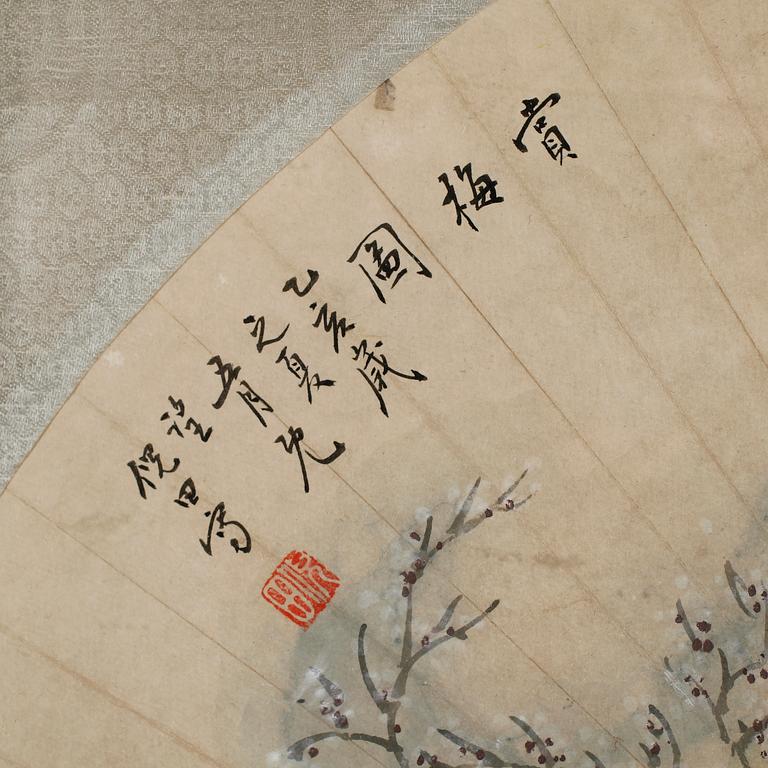 賞梅圖
乙亥歲
之夏
五月
望
倪田寫